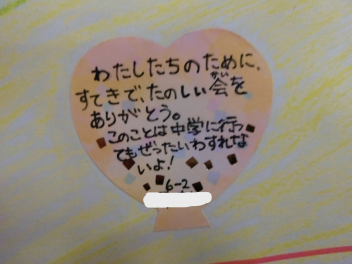 わたしたちのために、
すてきで、たのしい会を
ありがとう。
このことは中学に行っ
てもぜったいわすれな
いよ!
6-2